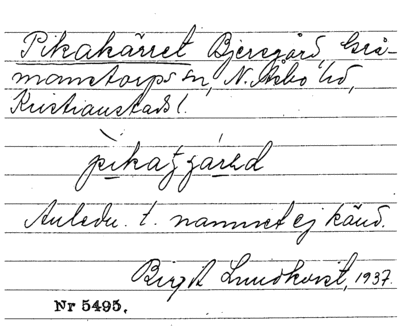 Pikakärret Bjersgård Grå-
manstorps sn, N. Åsbo hd,
Kristianstads l.
Anledn. t. namnet ej känd.
Birgit Lundkvist, 1937.
Nr 5495.